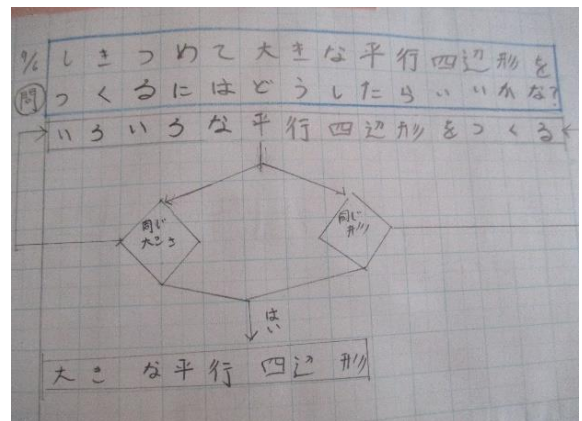 9/6 しきつめて大きな平行四辺形を
問 つくるにはどうしたらいいかな?
いろいろな平行四辺形をつくる
同じ
大きさ
同じ
形
はい
大きな平行四辺形